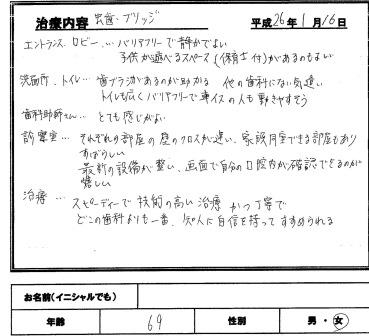 治療内容 虫歯・ブリッジ 平成26年1月16日
エントランス、ロビー…バリアフリーで静かでよい
子供が遊べるスペース(保育士付)があるのもよい
洗面所、トイレ…歯ブラシがあるのが助かる 他の歯科にない気遣い
トイレも広くバリアフリーで車イスの人も動きやすそう
歯科助師さん…とても感じがよい
診察室…それぞれの部屋の壁のクロスが違い、家族同室できる部屋もあり
すばらしい
最新の設備が整い、画面で自分の口腔内が確認できるのが
嬉しい
治療…スピーディーで技術の高い治療かつ丁寧で
どこの歯科よりも一番、知人に自信を持ってすすめられる
お名前(イニシャルでも)
年齢 69 性別 男・女